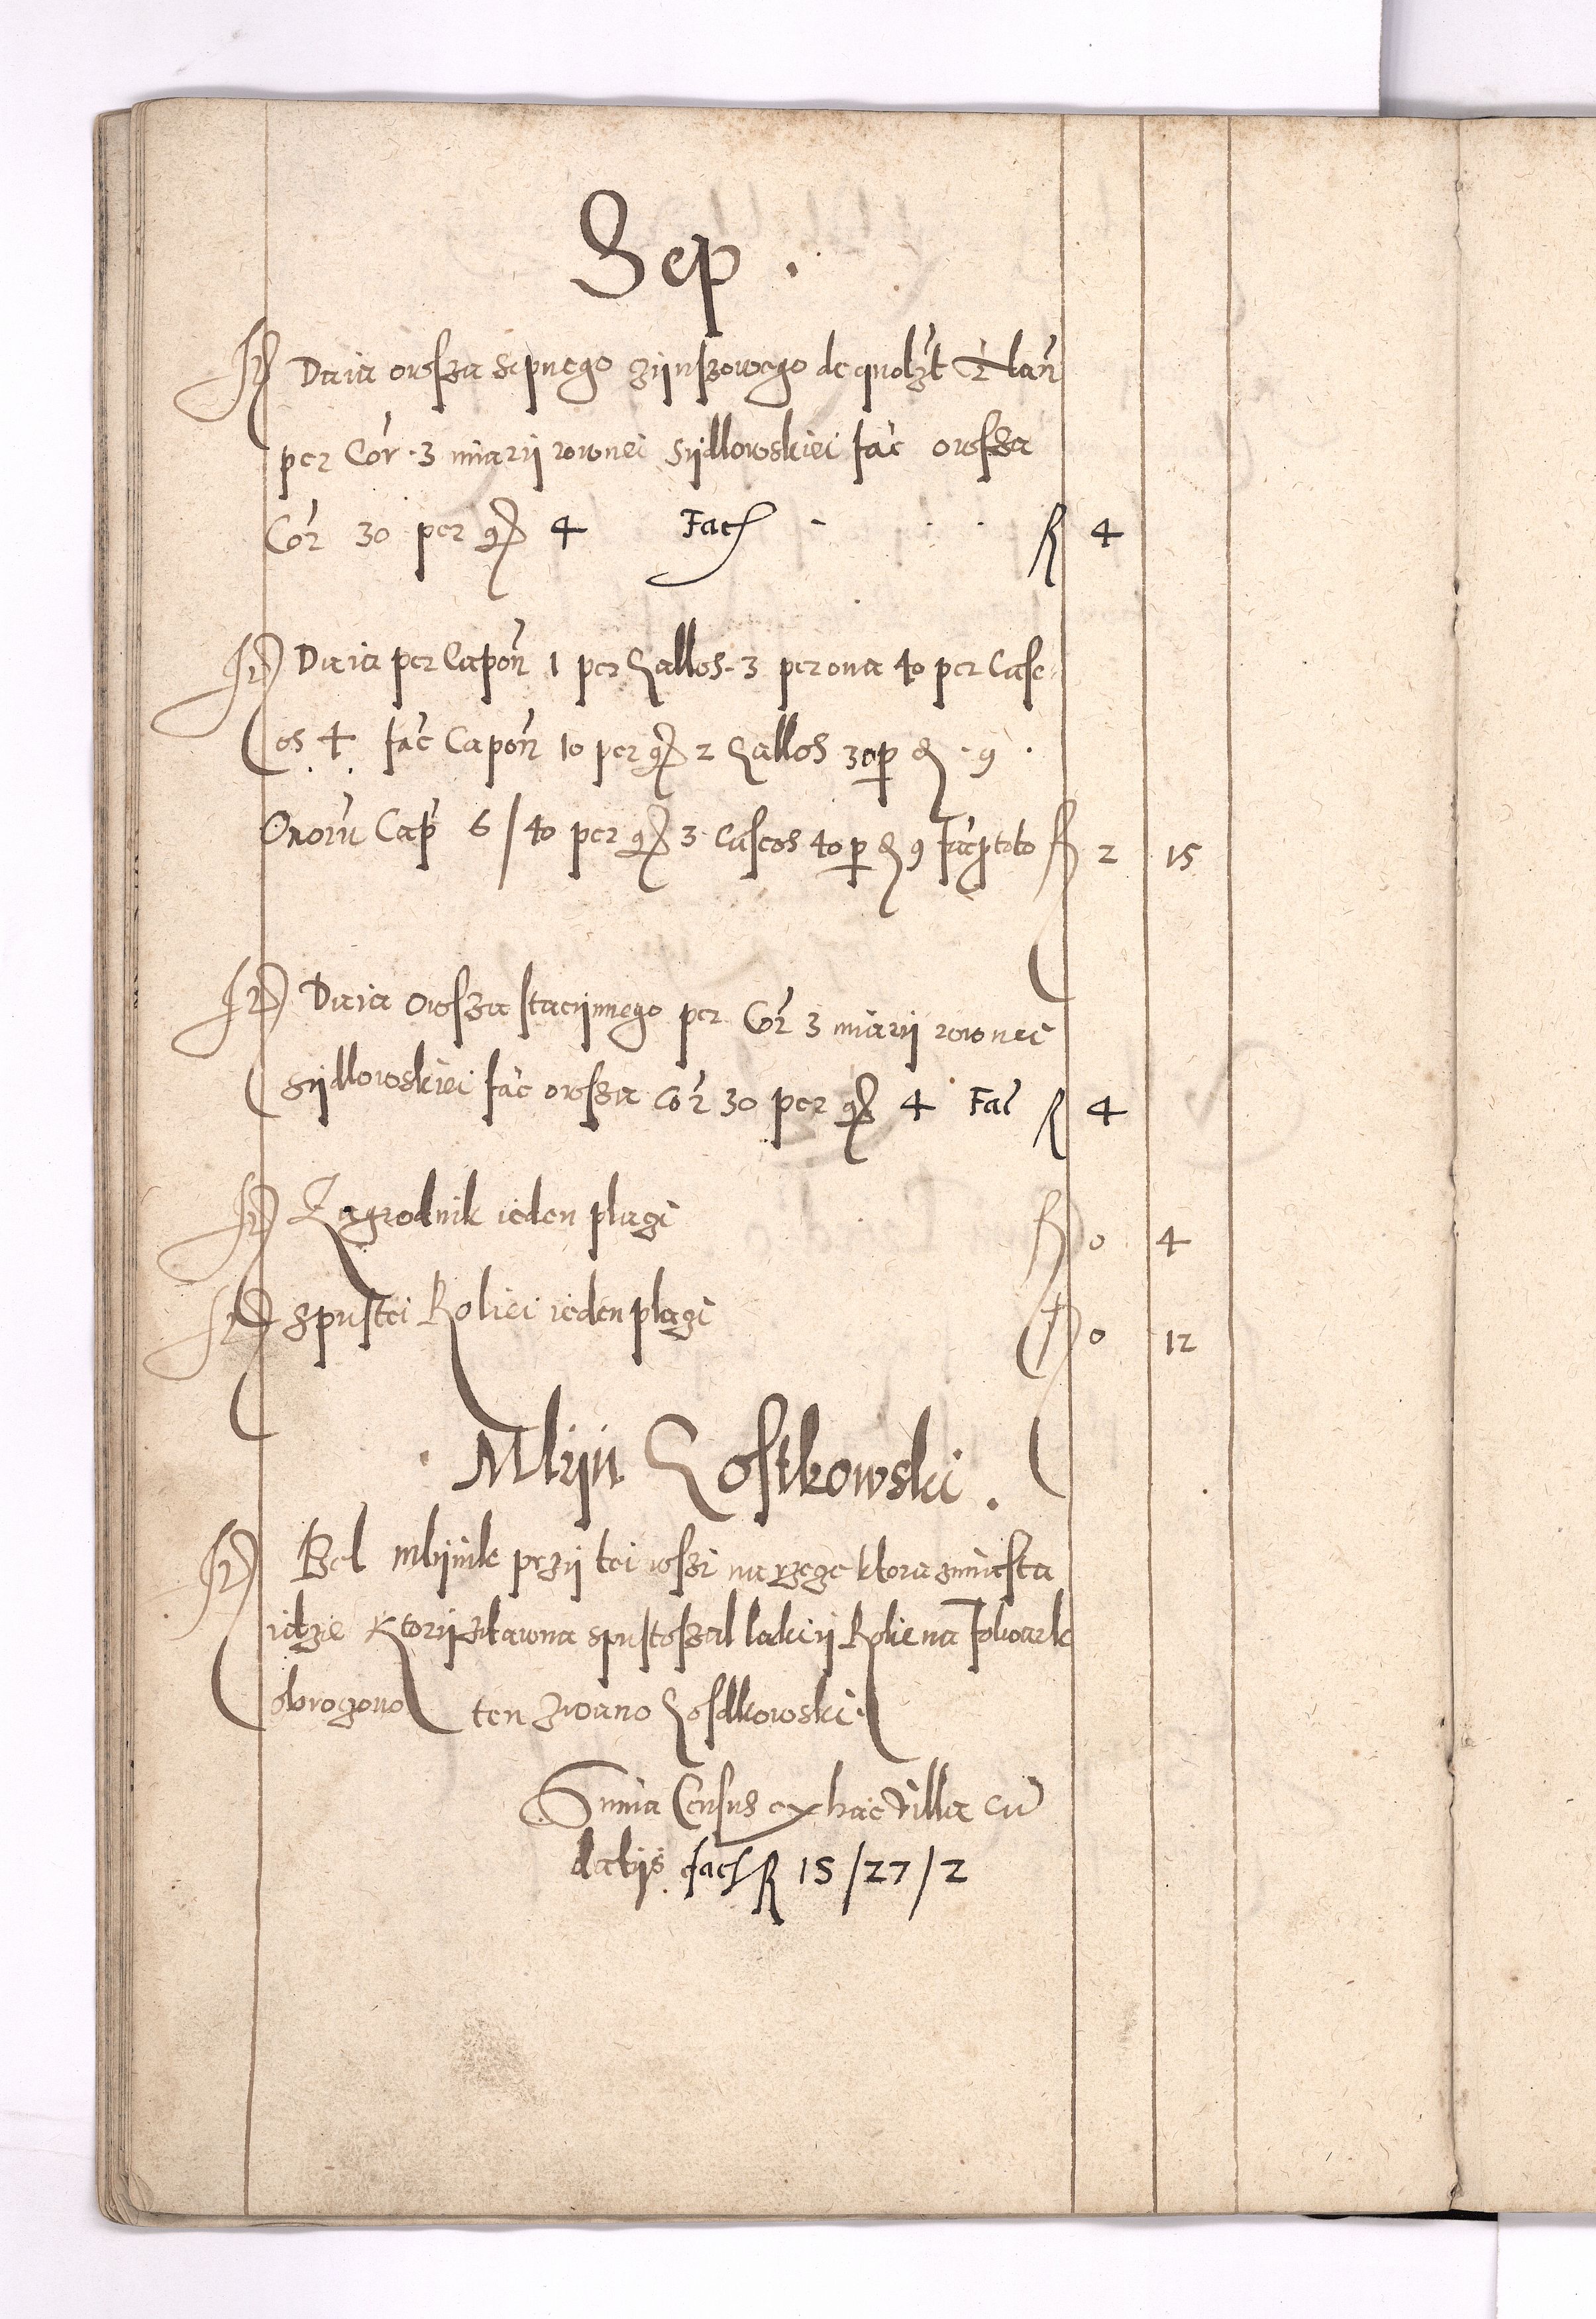 Sep.
It Daia owsza sepnego zijnszowego de quolzt ½ lan
per Cor. 3 miarij rownei Sijdlowskiei fac owsza
Cor 30 per gr 4 Fac R 4
It Daia per Capon 1 per Gallos. 3 per oua 40 per Case
os 4. fac Capon 10 per gr 2 Gallos 30 p d. 9.
Ouoru Cap 6/40 per gr 3. Caseos 40 p d 9 fac R 2 15
It Daia Owsza stacijnego per Cor 3 miarij rownei
Sijdlowskiei fac owsza Cor 30 per gr 4 Fac R 4
It Zagrodnik ieden placi R 0 4
It Spustei Roliei ieden placi R 0 12
Mlijn Gostkowski.
It Bel mlijnik przij tei wszi na rzece ktora zmiasta
idzie Ktorij zdawna spustoszal lakij Rolie na Folwark
obrocono ten zwano Gosdkowski.
Suma Census ex hac villa cu
datijs. fac R 15/27/2